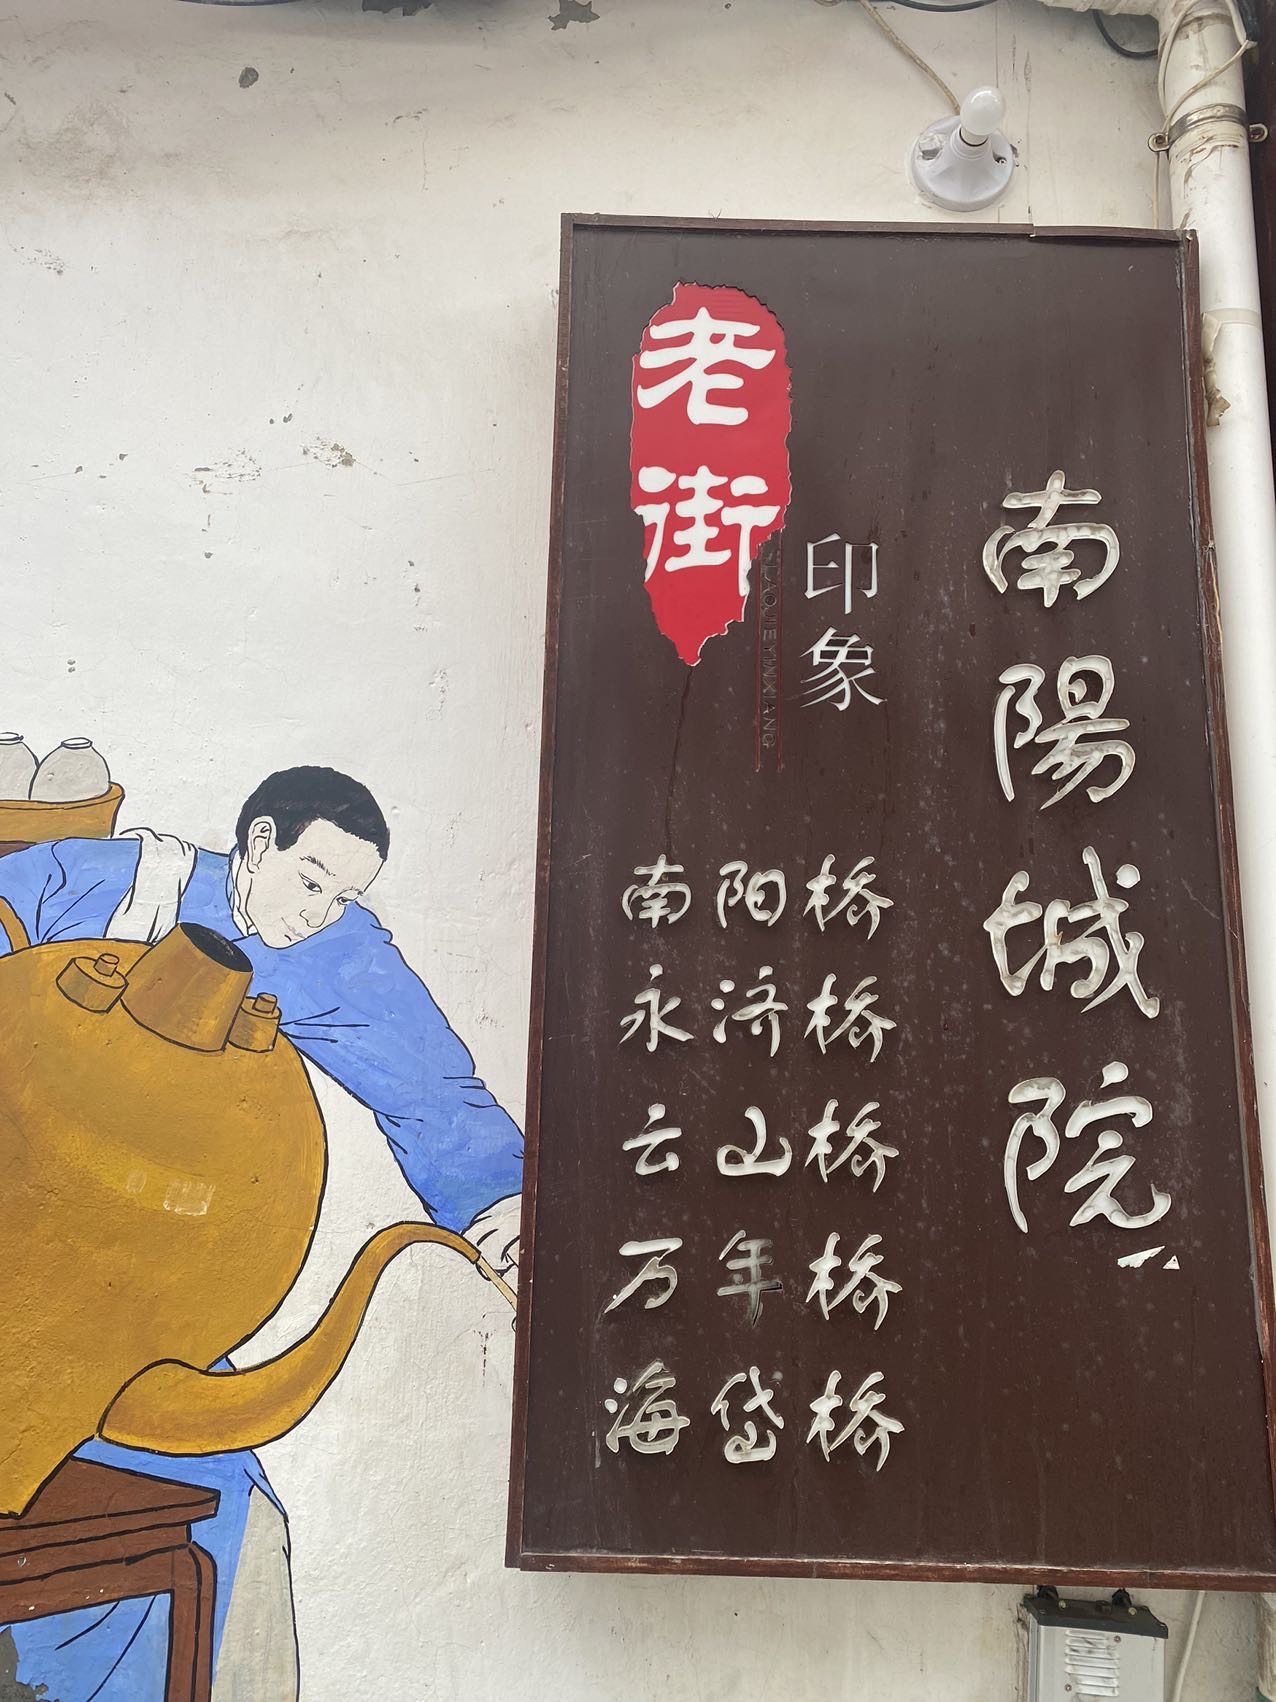 南陽城院
老街
印象
LAOJIEYINXIANG
南阳桥
永济桥
云山桥
万年桥
海岱桥